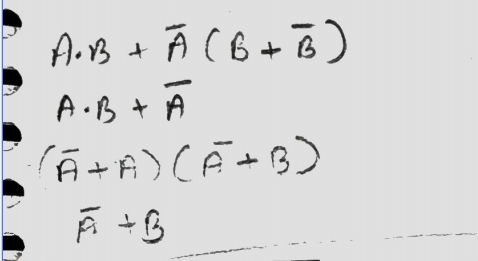 A·B + A̅ (B + B̅)
A·B + A̅
(A̅ + A) (A̅ + B)
A̅ + B